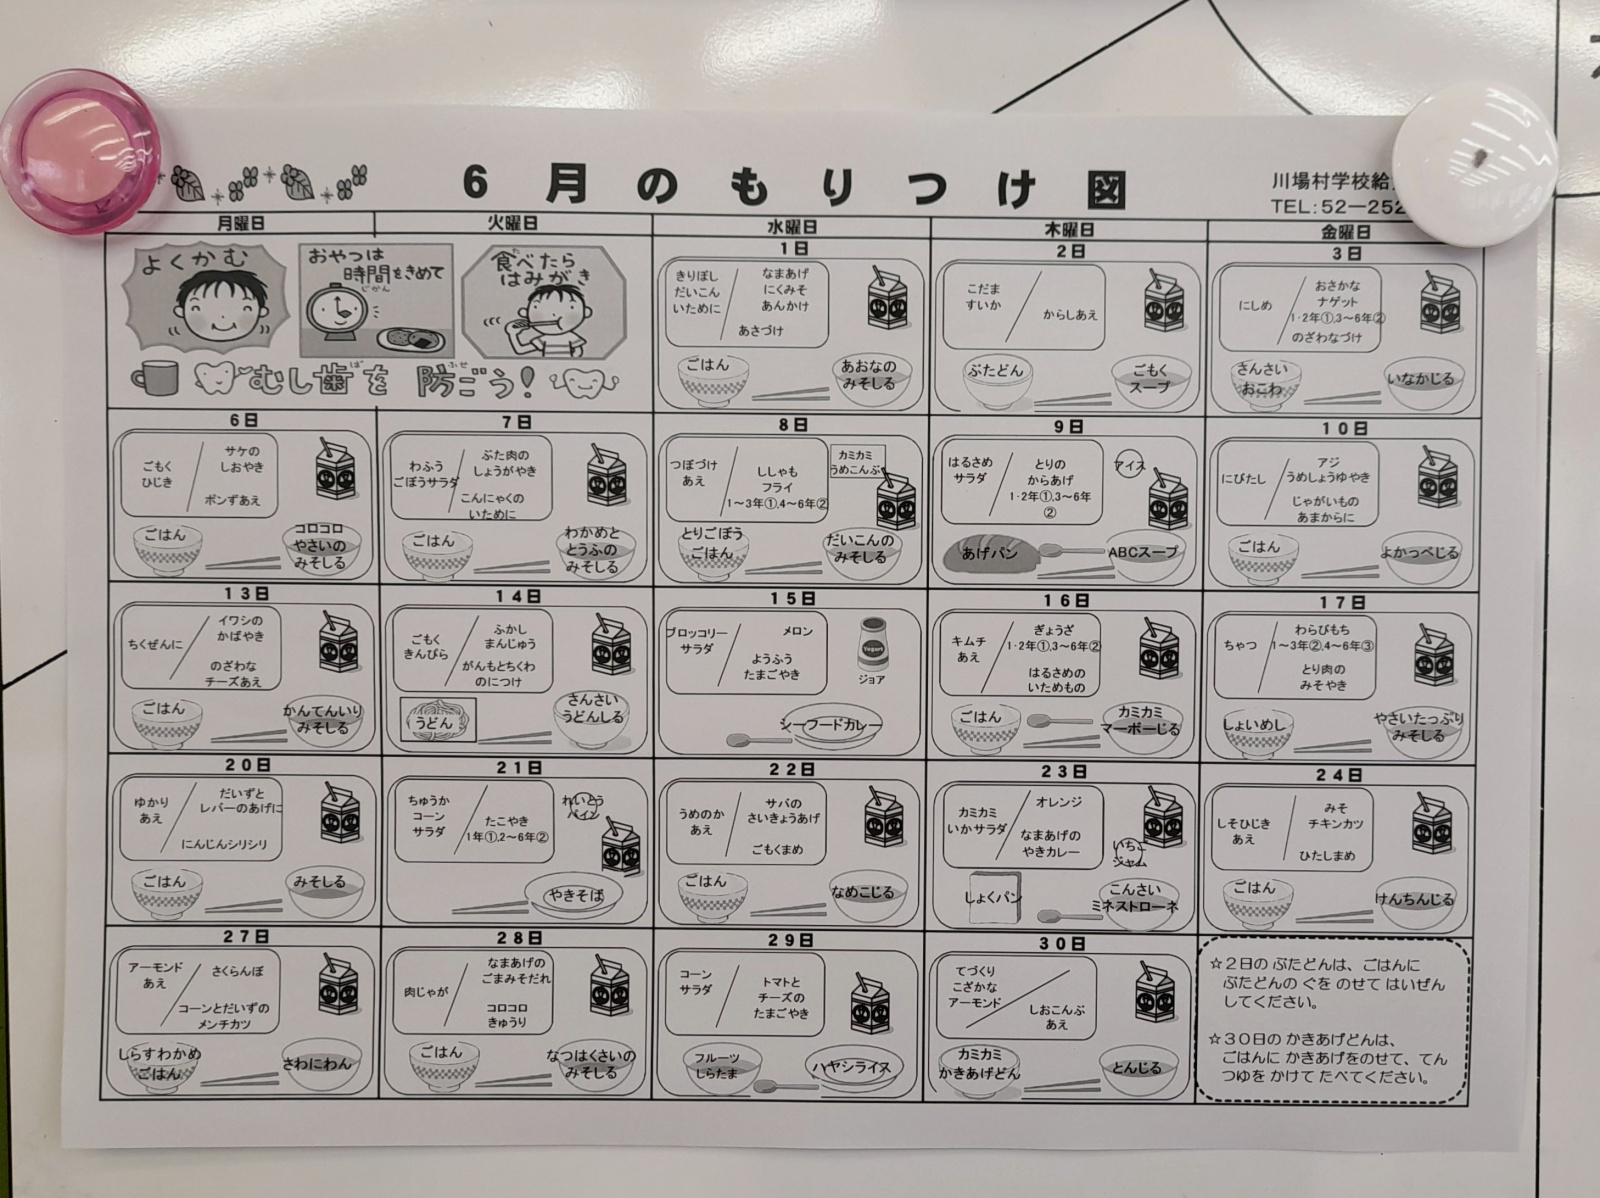 6月のもりつけ図
川場村学校給
TEL:52－252
月曜日
火曜日
水曜日
木曜日
金曜日
よくかむ
おやつは
時間をきめて
じかん
食べたら
はみがき
むし歯を 防ごう!
ば
ふせ
1日
きりぼし
だいこん
いために
なまあげ
にくみそ
あんかけ
あさづけ
ごはん
あおなの
みそしる
2日
こだま
すいか
からしあえ
ぶたどん
ごもく
スープ
3日
にしめ
おさかな
ナゲット
1·2年①,3～6年②
のざわなづけ
さんさい
おこわ
いなかじる
6日
ごもく
ひじき
サケの
しおやき
ポンずあえ
ごはん
コロコロ
やさいの
みそしる
7日
わふう
ごぼうサラダ
ぶた肉の
しょうがやき
こんにゃくの
いために
ごはん
わかめと
とうふの
みそしる
8日
つぼづけ
あえ
ししゃも
フライ
1～3年①,4～6年②
カミカミ
うめこんぶ
とりごぼう
ごはん
だいこんの
みそしる
9日
はるさめ
サラダ
とりの
からあげ
1·2年①,3～6年
②
アイス
あげパン
ABCスープ
10日
にびたし
アジ
うめしょうゆやき
じゃがいもの
あまからに
ごはん
よかっぺじる
13日
ちくぜんに
イワシの
かばやき
のざわな
チーズあえ
ごはん
かんてんいり
みそしる
14日
ごもく
きんぴら
ふかし
まんじゅう
がんもとちくわ
のにつけ
うどん
さんさい
うどんしる
15日
ブロッコリー
サラダ
メロン
ようふう
たまごやき
Yogurt
ジョア
シーフードカレー
16日
キムチ
あえ
ぎょうざ
1·2年①,3～6年②
はるさめの
いためもの
ごはん
カミカミ
マーボーじる
17日
ちゃつ
わらびもち
1～3年②,4～6年③
とり肉の
みそやき
しょいめし
やさいたっぷり
みそしる
20日
ゆかり
あえ
だいずと
レバーのあげに
にんじんシリシリ
ごはん
みそしる
21日
ちゅうか
コーン
サラダ
たこやき
1年①,2～6年②
れいとう
パイン
やきそば
22日
うめのか
あえ
サバの
さいきょうあげ
ごもくまめ
ごはん
なめこじる
23日
カミカミ
いかサラダ
オレンジ
なまあげの
やきカレー
いちご
ジャム
しょくパン
こんさい
ミネストローネ
24日
しそひじき
あえ
みそ
チキンカツ
ひたしまめ
ごはん
けんちんじる
27日
アーモンド
あえ
さくらんぼ
コーンとだいずの
メンチカツ
しらすわかめ
ごはん
さわにわん
28日
肉じゃが
なまあげの
ごまみそだれ
コロコロ
きゅうり
ごはん
なつはくさいの
みそしる
29日
コーン
サラダ
トマトと
チーズの
たまごやき
フルーツ
しらたま
ハヤシライス
30日
てづくり
こざかな
アーモンド
しおこんぶ
あえ
カミカミ
かきあげどん
とんじる
☆2日の ぶたどんは、ごはんに
ぶたどんの ぐを のせて はいぜん
してください。
☆30日の かきあげどんは、
ごはんに かきあげをのせて、てん
つゆを かけて たべてください。